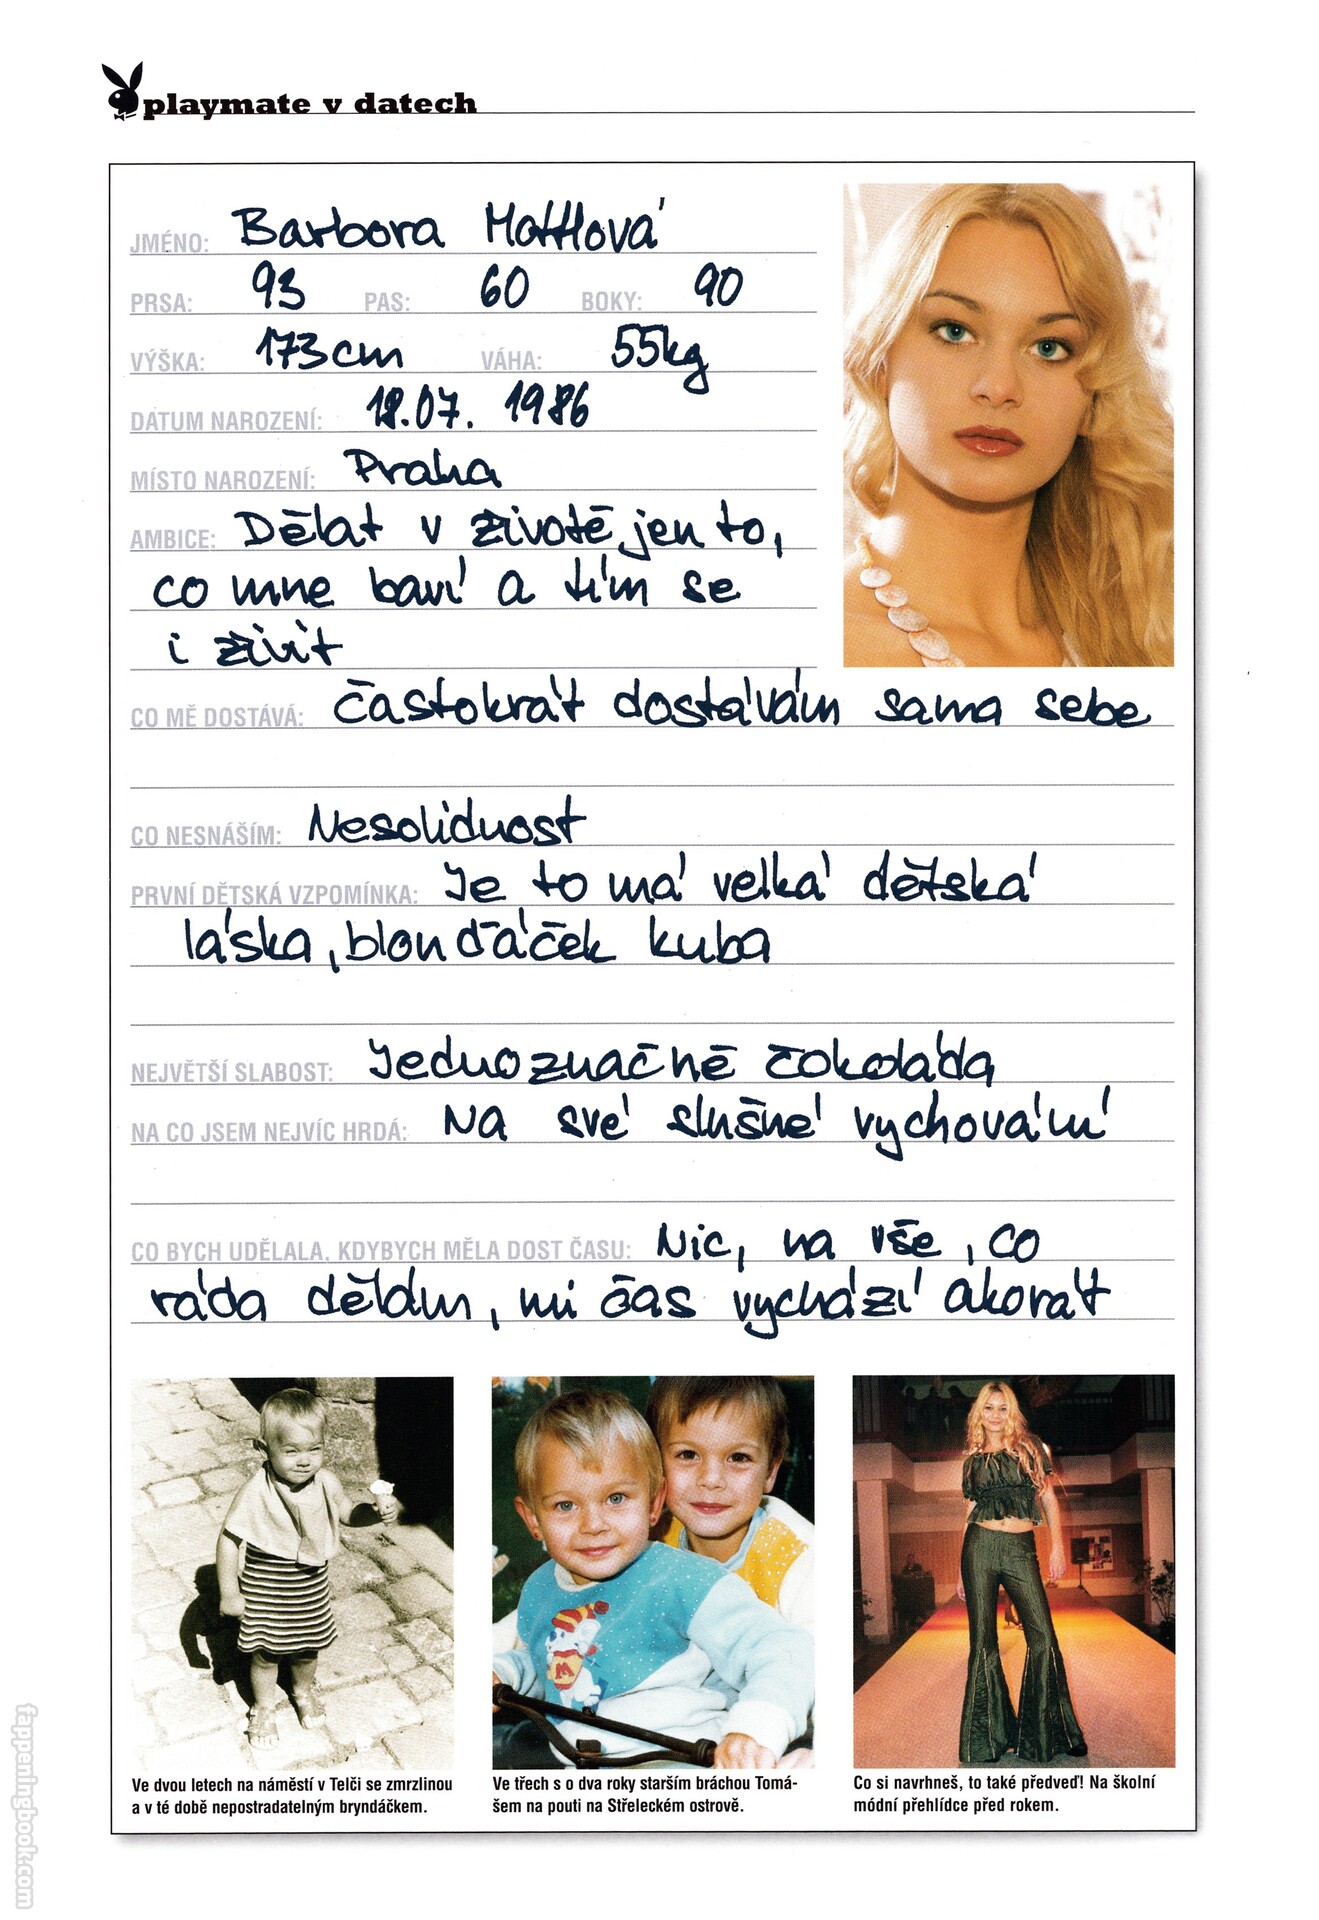 playmate v datech
JMÉNO: Barbora Mottlová
PRSA: 93 PAS: 60 BOKY: 90
VÝŠKA: 173cm VÁHA: 55kg
DATUM NAROZENÍ: 18.07. 1986
MÍSTO NAROZENÍ: Praha
AMBICE: Dělat v životě jen to,
co mne baví a tím se
i živit
CO MĚ DOSTÁVÁ: částokrát dostávám sama sebe
CO NESNÁŠÍM: Nesolidnost
PRVNÍ DĚTSKÁ VZPOMÍNKA: Je to má velká dětská
láska, blonďáček kuba
NEJVĚTŠÍ SLABOST: Jednoznačně čokoláda
NA CO JSEM NEJVÍC HRDÁ: Na své slušné vychování
CO BYCH UDĚLALA, KDYBYCH MĚLA DOST ČASU: Nic, na vše, co
ráda dělám, mi čas vychází akorát
M
Ve dvou letech na náměstí v Telči se zmrzlinou
a v té době nepostradatelným bryndáčkem.
Ve třech s o dva roky starším bráchou Tomá-
šem na pouti na Střeleckém ostrově.
Co si navrhneš, to také předveď! Na školní
módní přehlídce před rokem.
fappeningbook.com